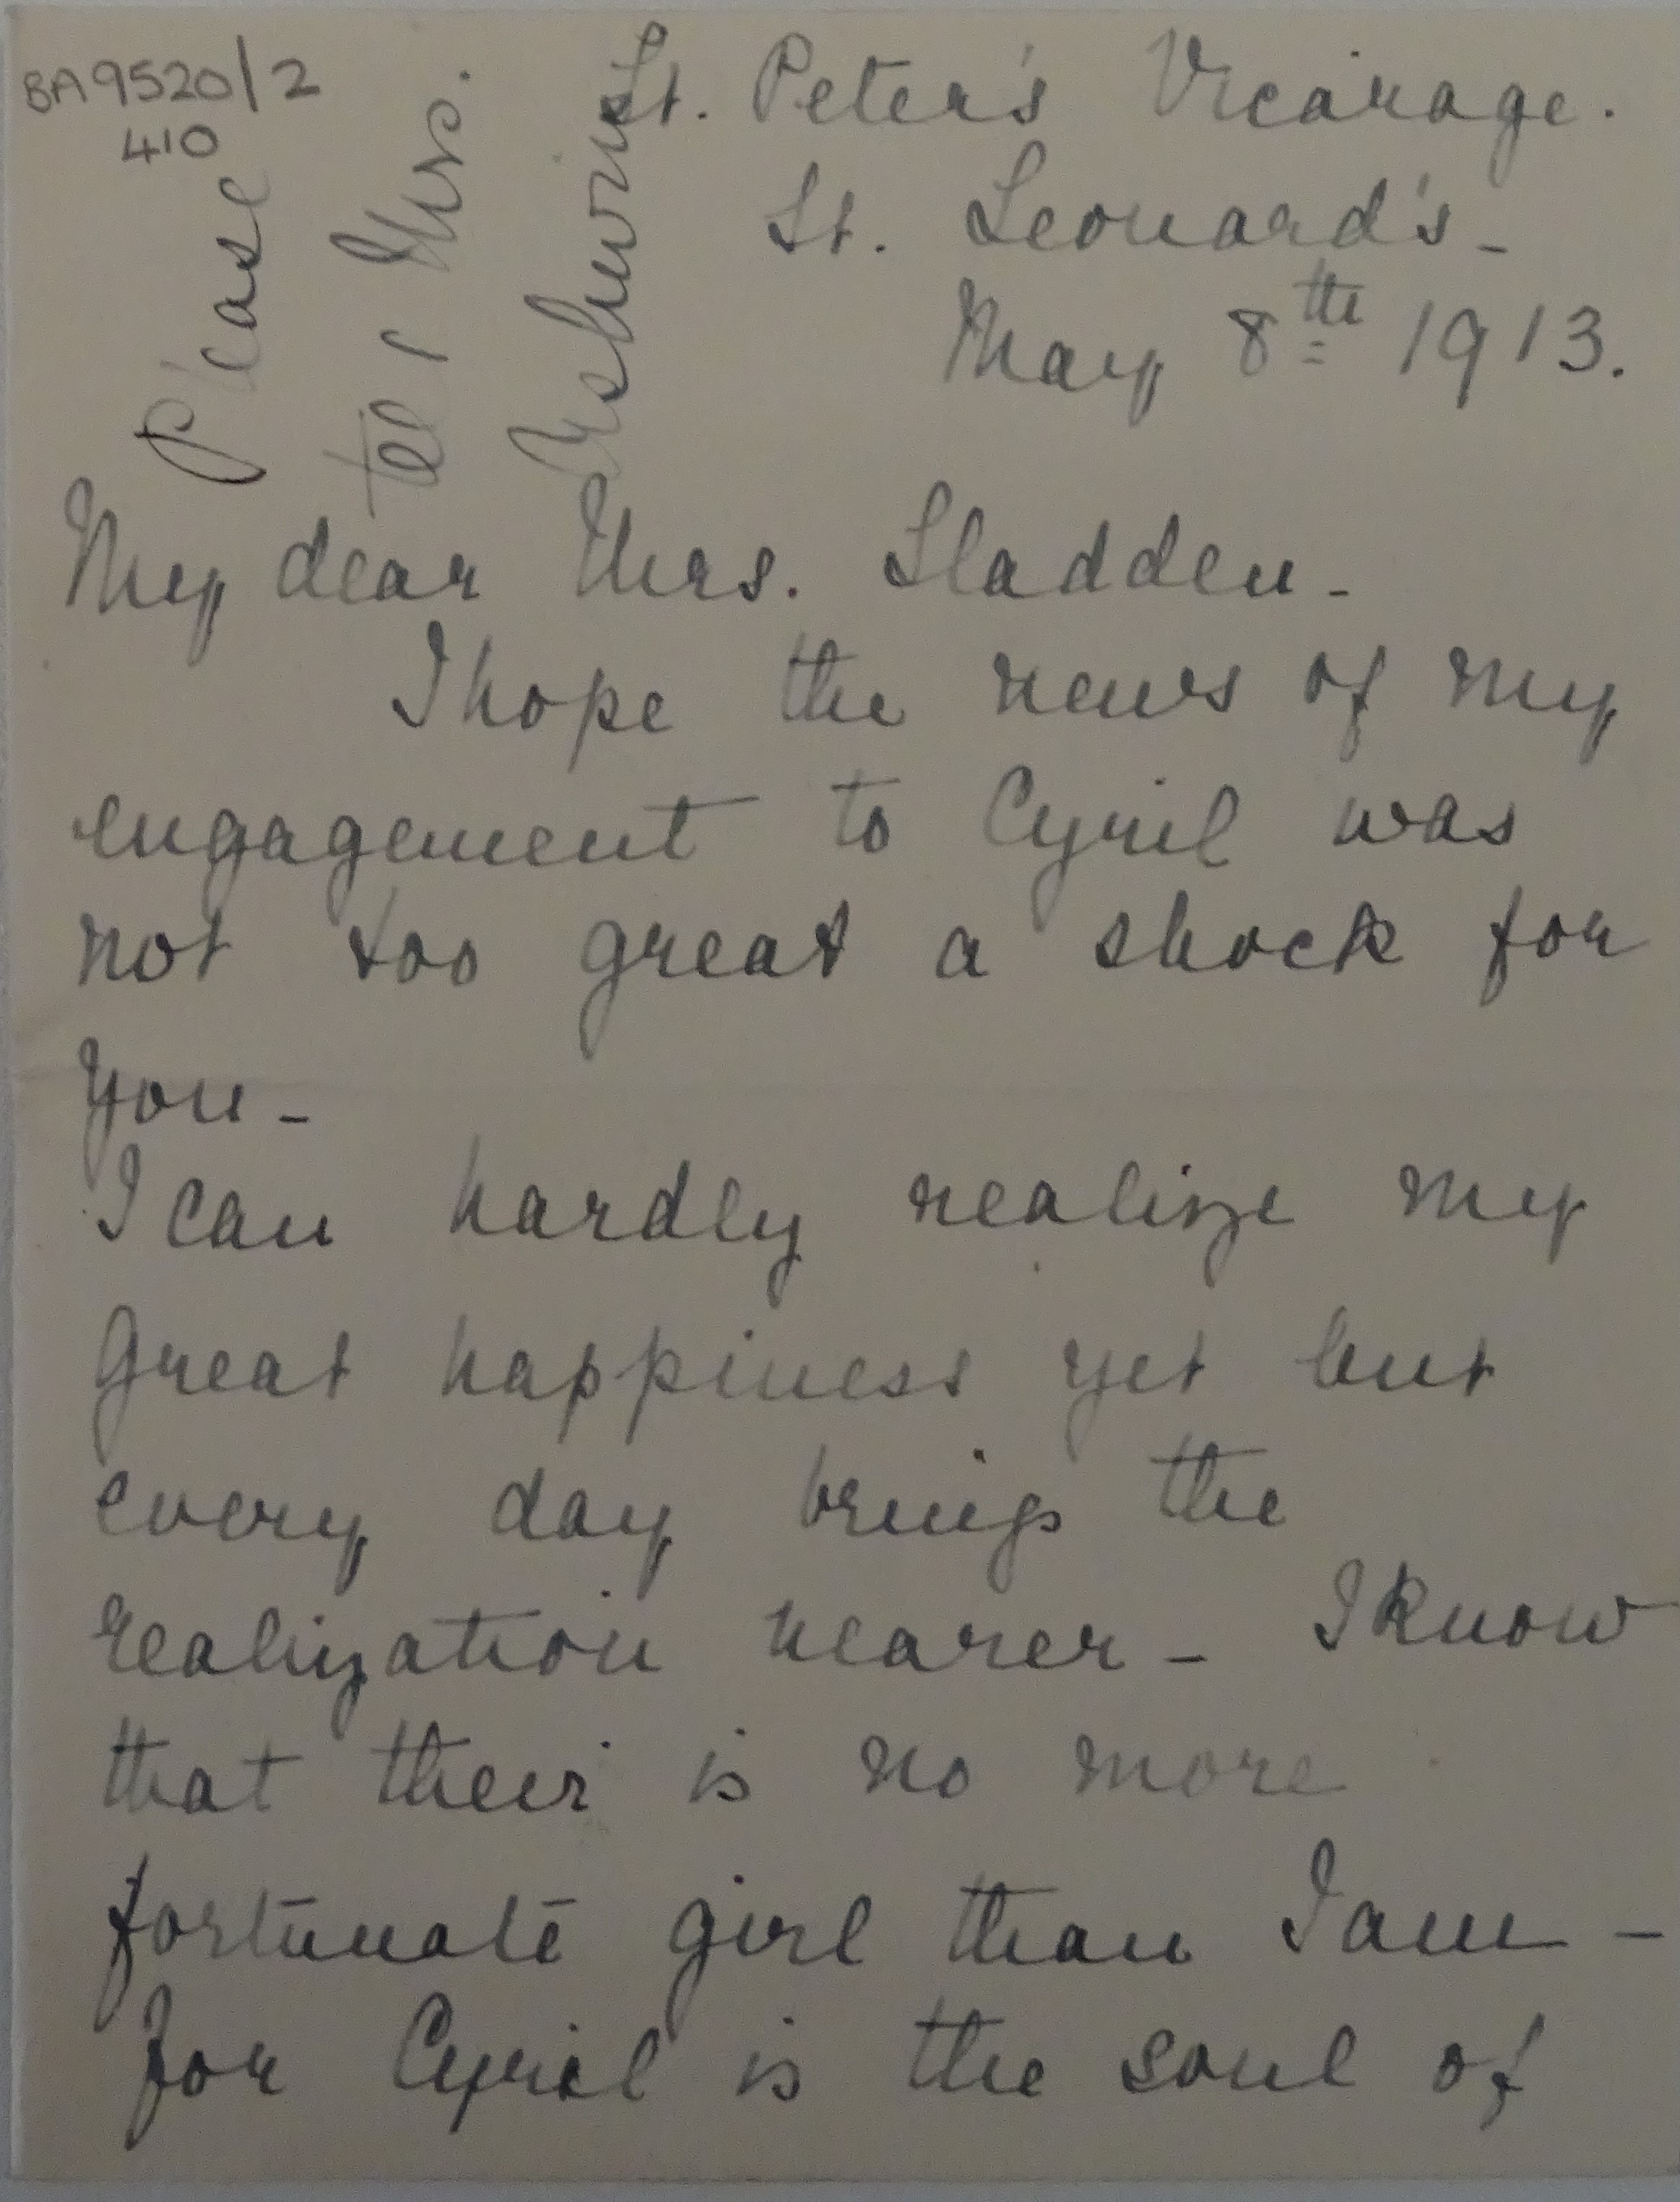 BA9520/2
410
St. Peter's Vicarage.
St. Leonard's -
May 8th 1913.
Please
tell Mrs.
My dear Mrs. Sladden -
I hope the news of my
engagement to Cyril was
not too great a shock for
you -
I can hardly realize my
great happiness yet but
every day brings the
realization nearer - I know
that their is no more
fortunate girl than I am -
for Cyril is the soul of